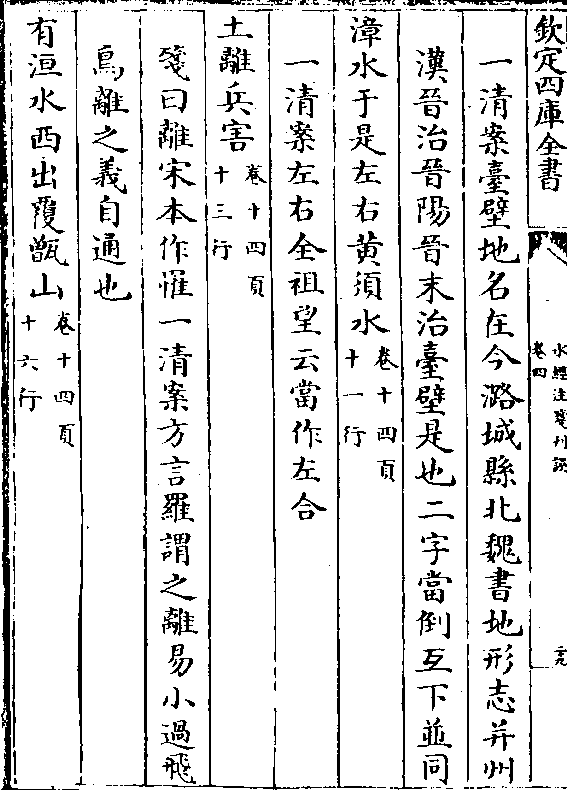 欽定四庫全書
水經注箋刊誤
卷四
一清案臺壁地名在今潞城縣北魏書地形志并州
漢晉治晉陽晉末治臺壁是也二字當倒互下並同
漳水于是左右黄須水卷十四頁十一行
一清案左右全祖望云當作左合
土離兵害卷十四頁十三行
箋曰離宋本作惟一清案方言羅謂之離易小過飛
鳥離之義自通也
有洹水西出覆甑山卷十四頁十六行